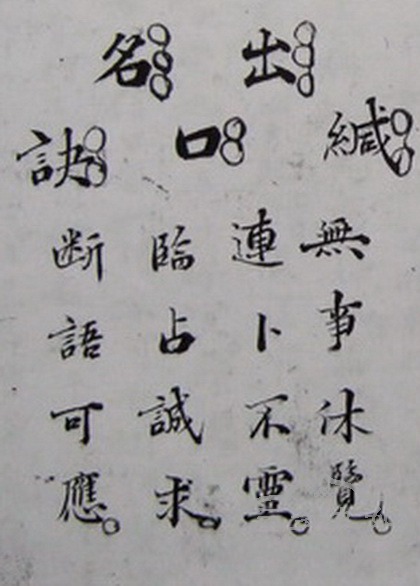 出名
緘口訣
無事休覽
連卜不靈
臨占誠求
断語可應